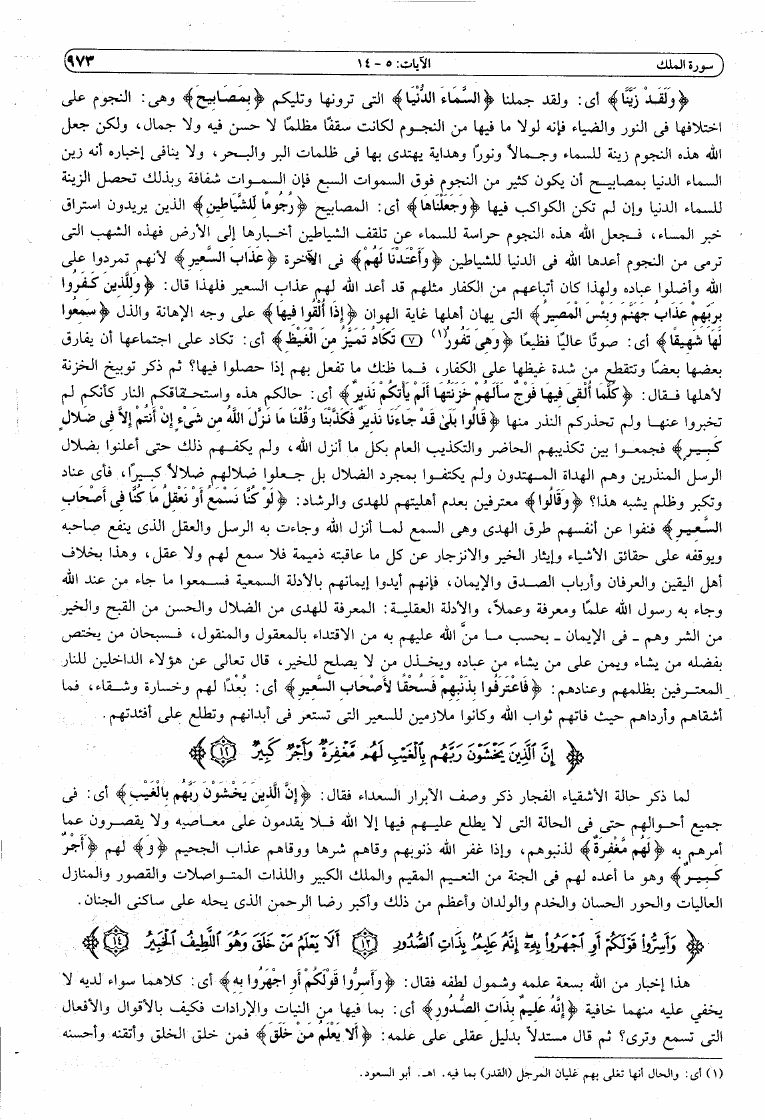 سورة الملك الآيات: ٥ - ١٤ ٩٧٣
﴿وَلَقَدْ زَيَّنَّا﴾ أى: ولقد جملنا ﴿السَّمَاءَ الدُّنْيَا﴾ التى ترونها وتليكم ﴿بِمَصَابِيحَ﴾ وهى: النجوم على
اختلافها فى النور والضياء فإنه لولا ما فيها من النجوم لكانت سقفًا مظلمًا لا حسن فيه ولا جمال، ولكن جعل
الله هذه النجوم زينة للسماء وجمالاً ونورًا وهداية يهتدى بها فى ظلمات البر والبحر، ولا ينافى إخباره أنه زين
السماء الدنيا بمصابيح أن يكون كثير من النجوم فوق السموات السبع فإن السموات شفافة وبذلك تحصل الزينة
للسماء الدنيا وإن لم تكن الكواكب فيها ﴿وَجَعَلْنَاهَا﴾ أى: المصابيح ﴿رُجُومًا لِّلشَّيَاطِينِ﴾ الذين يريدون استراق
خبر المساء، فجعل الله هذه النجوم حراسة للسماء عن تلقف الشياطين أخبارها إلى الأرض فهذه الشهب التى
ترمى من النجوم أعدها الله فى الدنيا للشياطين ﴿وَأَعْتَدْنَا لَهُمْ﴾ فى الآخرة ﴿عَذَابَ السَّعِيرِ﴾ لأنهم تمردوا على
الله وأضلوا عباده ولهذا كان أتباعهم من الكفار مثلهم قد أعد الله لهم عذاب السعير فلهذا قال: ﴿وَلِلَّذِينَ كَفَرُوا
بِرَبِّهِمْ عَذَابُ جَهَنَّمَ وَبِئْسَ الْمَصِيرُ﴾ التى يهان أهلها غاية الهوان ﴿إِذَا أُلْقُوا فِيهَا﴾ على وجه الإهانة والذل ﴿سَمِعُوا
لَهَا شَهِيقًا﴾ أى: صوتًا عاليًا فظيعًا ﴿وَهِىَ تَفُورُ(١) ⑦ تَكَادُ تَمَيَّزُ مِنَ الْغَيْظِ﴾ أى: تكاد على اجتماعها أن يفارق
بعضها بعضًا وتتقطع من شدة غيظها على الكفار، فما ظنك ما تفعل بهم إذا حصلوا فيها؟ ثم ذكر توبيخ الخزنة
لأهلها فقال: ﴿كُلَّمَا أُلْقِىَ فِيهَا فَوْجٌ سَأَلَهُمْ خَزَنَتُهَا أَلَمْ يَأْتِكُمْ نَذِيرٌ﴾ أى: حالكم هذه واستحقاقكم النار كأنكم لم
تخبروا عنها ولم تحذركم النذر منها ﴿قَالُوا بَلَىٰ قَدْ جَاءَنَا نَذِيرٌ فَكَذَّبْنَا وَقُلْنَا مَا نَزَّلَ اللَّهُ مِن شَىْءٍ إِنْ أَنتُمْ إِلاَّ فِى ضَلالٍ
كَبِيرٍ﴾ فجمعوا بين تكذيبهم الحاضر والتكذيب العام بكل ما أنزل الله، ولم يكفهم ذلك حتى أعلنوا بضلال
الرسل المنذرين وهم الهداة المهتدون ولم يكتفوا بمجرد الضلال بل جعلوا ضلالهم ضلالاً كبيرًا، فأى عناد
وتكبر وظلم يشبه هذا؟ ﴿وَقَالُوا﴾ معترفين بعدم أهليتهم للهدى والرشاد: ﴿لَوْ كُنَّا نَسْمَعُ أَوْ نَعْقِلُ مَا كُنَّا فِى أَصْحَابِ
السَّعِيرِ﴾ فنفوا عن أنفسهم طرق الهدى وهى السمع لما أنزل الله وجاءت به الرسل والعقل الذى ينفع صاحبه
ويوقفه على حقائق الأشياء وإيثار الخير والانزجار عن كل ما عاقبته ذميمة فلا سمع لهم ولا عقل، وهذا بخلاف
أهل اليقين والعرفان وأرباب الصدق والإيمان، فإنهم أيدوا إيمانهم بالأدلة السمعية فسمعوا ما جاء من عند الله
وجاء به رسول الله علمًا ومعرفة وعملاً، والأدلة العقلية: المعرفة للهدى من الضلال والحسن من القبح والخير
من الشر وهم ـ فى الإيمان ـ بحسب ما منَّ الله عليهم به من الاقتداء بالمعقول والمنقول، فسبحان من يختص
بفضله من يشاء ويمن على من يشاء من عباده ويخذل من لا يصلح للخير، قال تعالى عن هؤلاء الداخلين للنار
المعترفين بظلمهم وعنادهم: ﴿فَاعْتَرَفُوا بِذَنبِهِمْ فَسُحْقًا لأَصْحَابِ السَّعِيرِ﴾ أى: بُعْدًا لهم وخسارة وشقاء، فما
أشقاهم وأرداهم حيث فاتهم ثواب الله وكانوا ملازمين للسعير التى تستعر فى أبدانهم وتطلع على أفئدتهم.
﴿إِنَّ ٱلَّذِينَ يَخْشَوْنَ رَبَّهُم بِٱلْغَيْبِ لَهُم مَّغْفِرَةٌ وَأَجْرٌ كَبِيرٌ ⑫﴾
لما ذكر حالة الأشقياء الفجار ذكر وصف الأبرار السعداء فقال: ﴿إِنَّ الَّذِينَ يَخْشَوْنَ رَبَّهُم بِالْغَيْبِ﴾ أى: فى
جميع أحوالهم حتى فى الحالة التى لا يطلع عليهم فيها إلا الله فلا يقدمون على معاصيه ولا يقصرون عما
أمرهم به ﴿لَهُم مَّغْفِرَةٌ﴾ لذنوبهم، وإذا غفر الله ذنوبهم وقاهم شرها ووقاهم عذاب الجحيم ﴿وَ﴾ لهم ﴿أَجْرٌ
كَبِيرٌ﴾ وهو ما أعده لهم فى الجنة من النعيم المقيم والملك الكبير واللذات المتواصلات والقصور والمنازل
العاليات والحور الحسان والخدم والولدان وأعظم من ذلك وأكبر رضا الرحمن الذى يحله على ساكنى الجنان.
﴿وَأَسِرُّوا۟ قَوْلَكُمْ أَوِ ٱجْهَرُوا۟ بِهِۦٓ إِنَّهُۥ عَلِيمٌۢ بِذَاتِ ٱلصُّدُورِ ⑬ أَلَا يَعْلَمُ مَنْ خَلَقَ وَهُوَ ٱللَّطِيفُ ٱلْخَبِيرُ ⑭﴾
هذا إخبار من الله بسعة علمه وشمول لطفه فقال: ﴿وَأَسِرُّوا قَوْلَكُمْ أَوِ اجْهَرُوا بِهِ﴾ أى: كلاهما سواء لديه لا
يخفي عليه منهما خافية ﴿إِنَّهُ عَلِيمٌ بِذَاتِ الصُّدُورِ﴾ أى: بما فيها من النيات والإرادات فكيف بالأقوال والأفعال
التى تسمع وترى؟ ثم قال مستدلاً بدليل عقلى على علمه: ﴿أَلا يَعْلَمُ مَنْ خَلَقَ﴾ فمن خلق الخلق وأتقنه وأحسنه
(١) أى: والحال أنها تغلى بهم غليان المرجل (القدر) بما فيه. اهـ. أبو السعود.